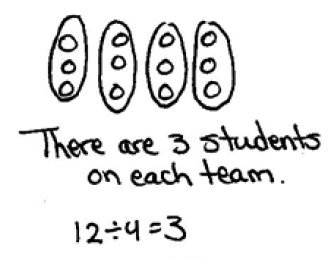 There are 3 students
on each team.
12÷4=3